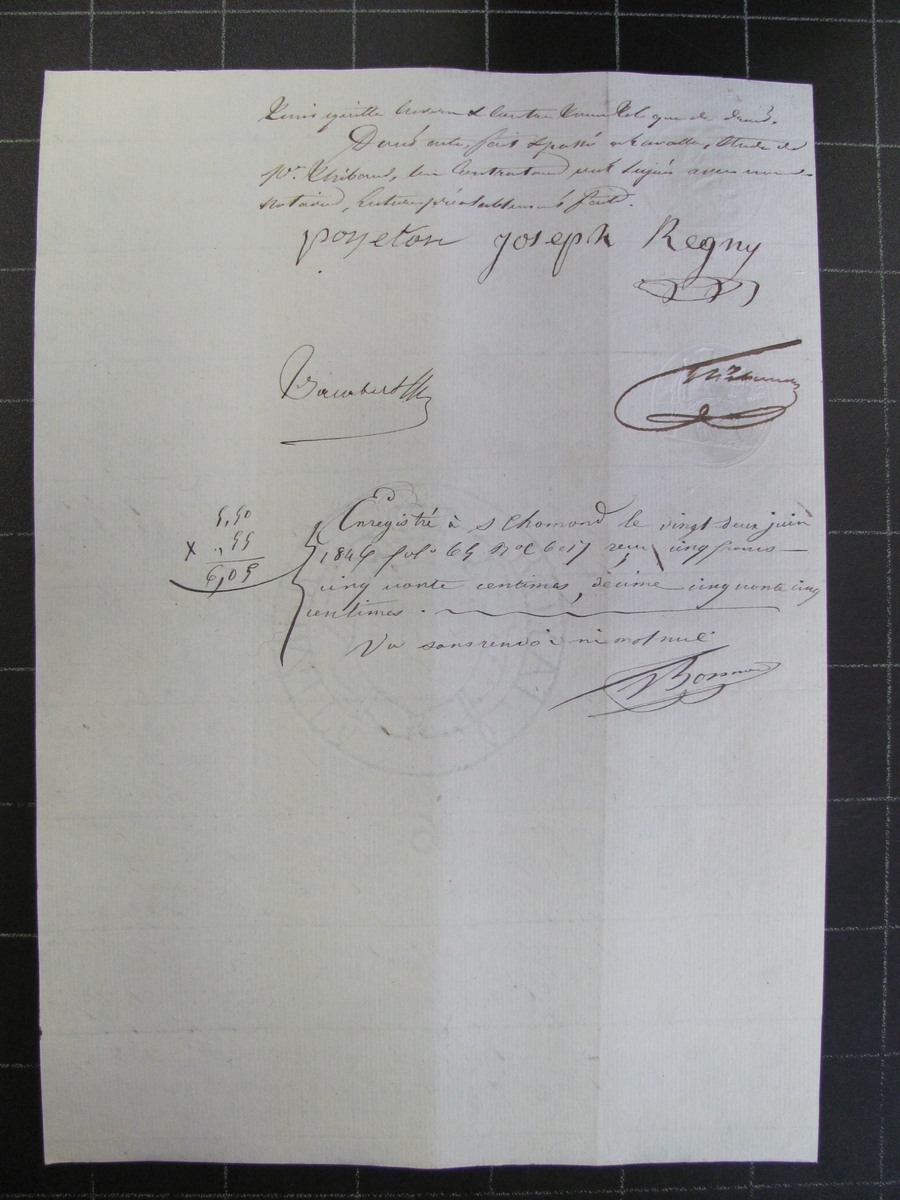 quitte envers l'autre que de droit.
Dont acte, fait & passé étude de
Mᵉ Thibaud, les Contractans ont signé avec nous
notaires, lecture préalablement faite.
poyeton joseph Regny
5,50
x .,55
6,05
Enregistré à St Chamond le vingt deux juin
1846 folº 65 Rº C 6 et 7 reçu cinq francs
cinquante centimes, décime cinquante cinq
centimes.
Vu sans renvoi ni mot nul